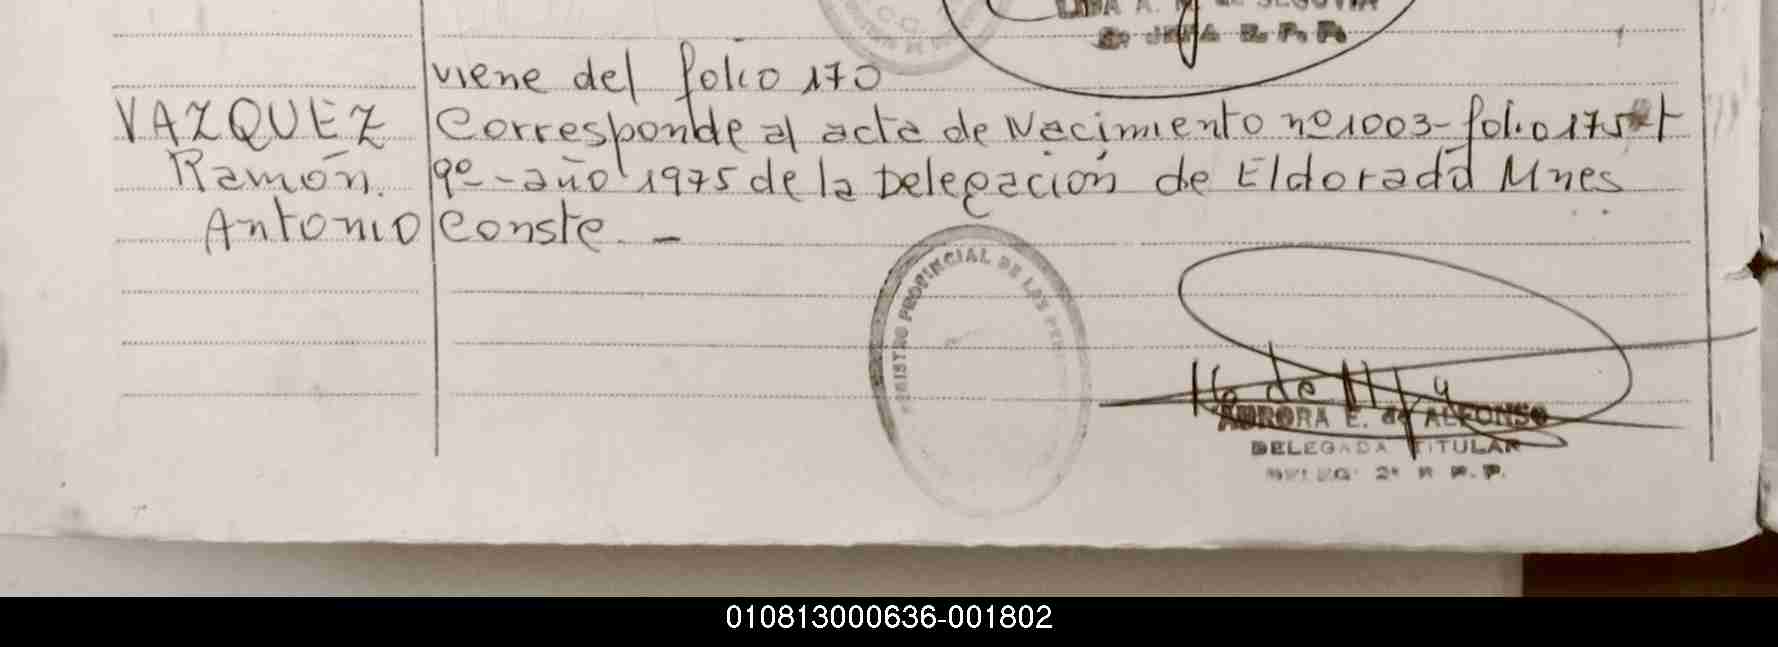 LIDA A. M. de SEGOVIA
JEFA R. P. P.
viene del folio 170
VAZQUEZ Corresponde al acta de Nacimiento nº 1003- folio 175 t
Ramón. 9º - año 1975 de la Delegación de Eldorado Mnes
Antonio Conste. -
REGISTRO PROVINCIAL DE LAS PER
AURORA E. de ALFONSO
DELEGADA TITULAR
DELEG 2ª R P. P.
010813000636-001802